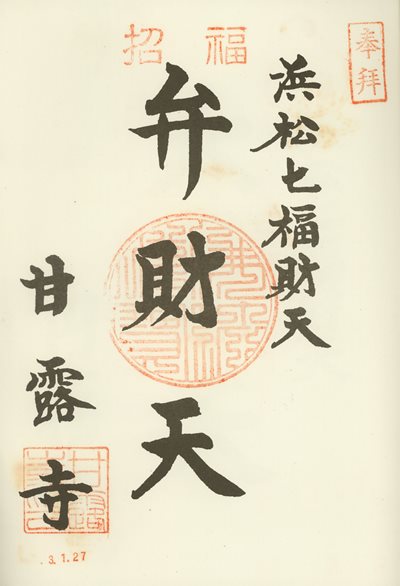 奉拝
浜松七福財天
福招
弁財天
甘露寺
3.1.27